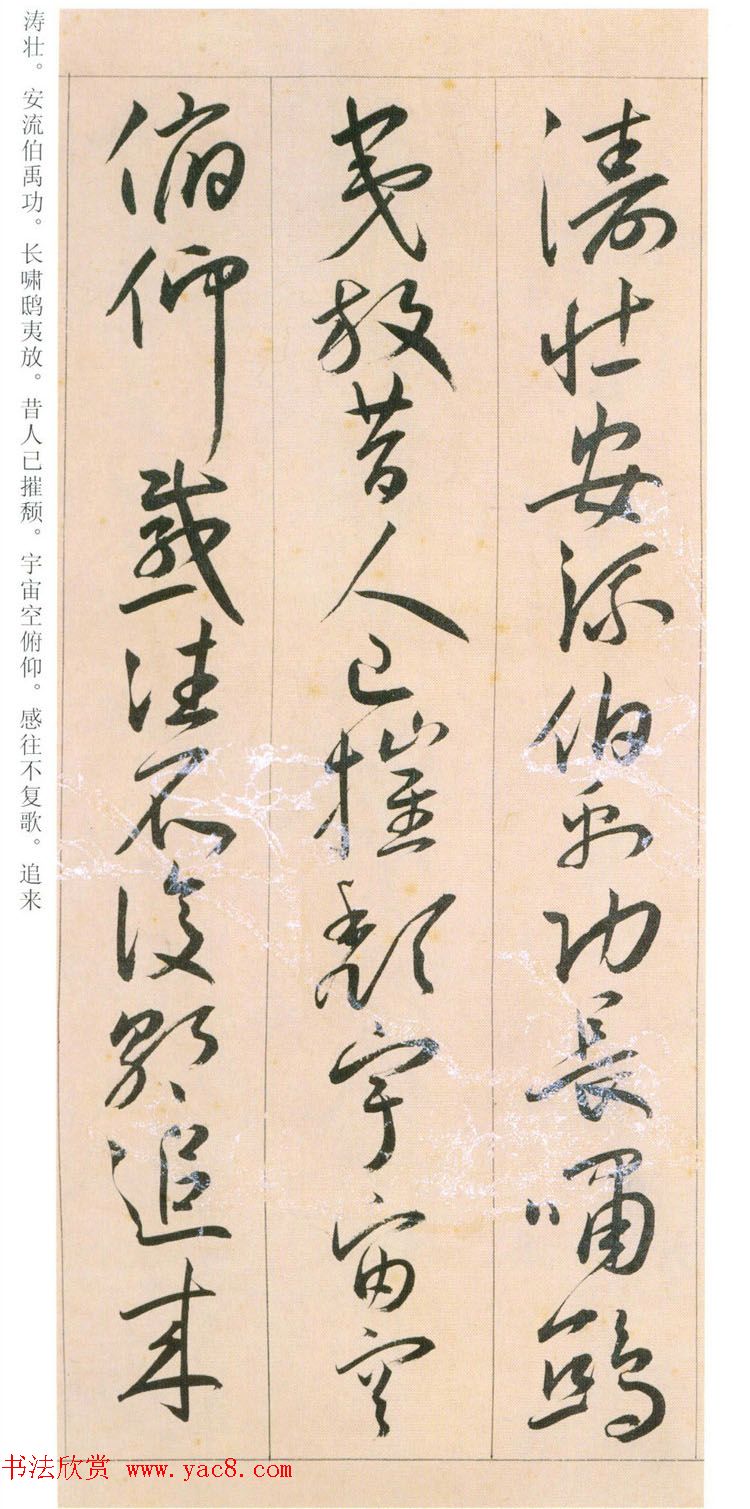 濤壮安流伯禹功長嘯鴟
夷放昔人已摧頹宇宙空
俯仰感往不復歌追来
涛壮。安流伯禹功。长啸鸱夷放。昔人已摧颓。宇宙空俯仰。感往不复歌。追来
书法欣赏 www.yac8.com